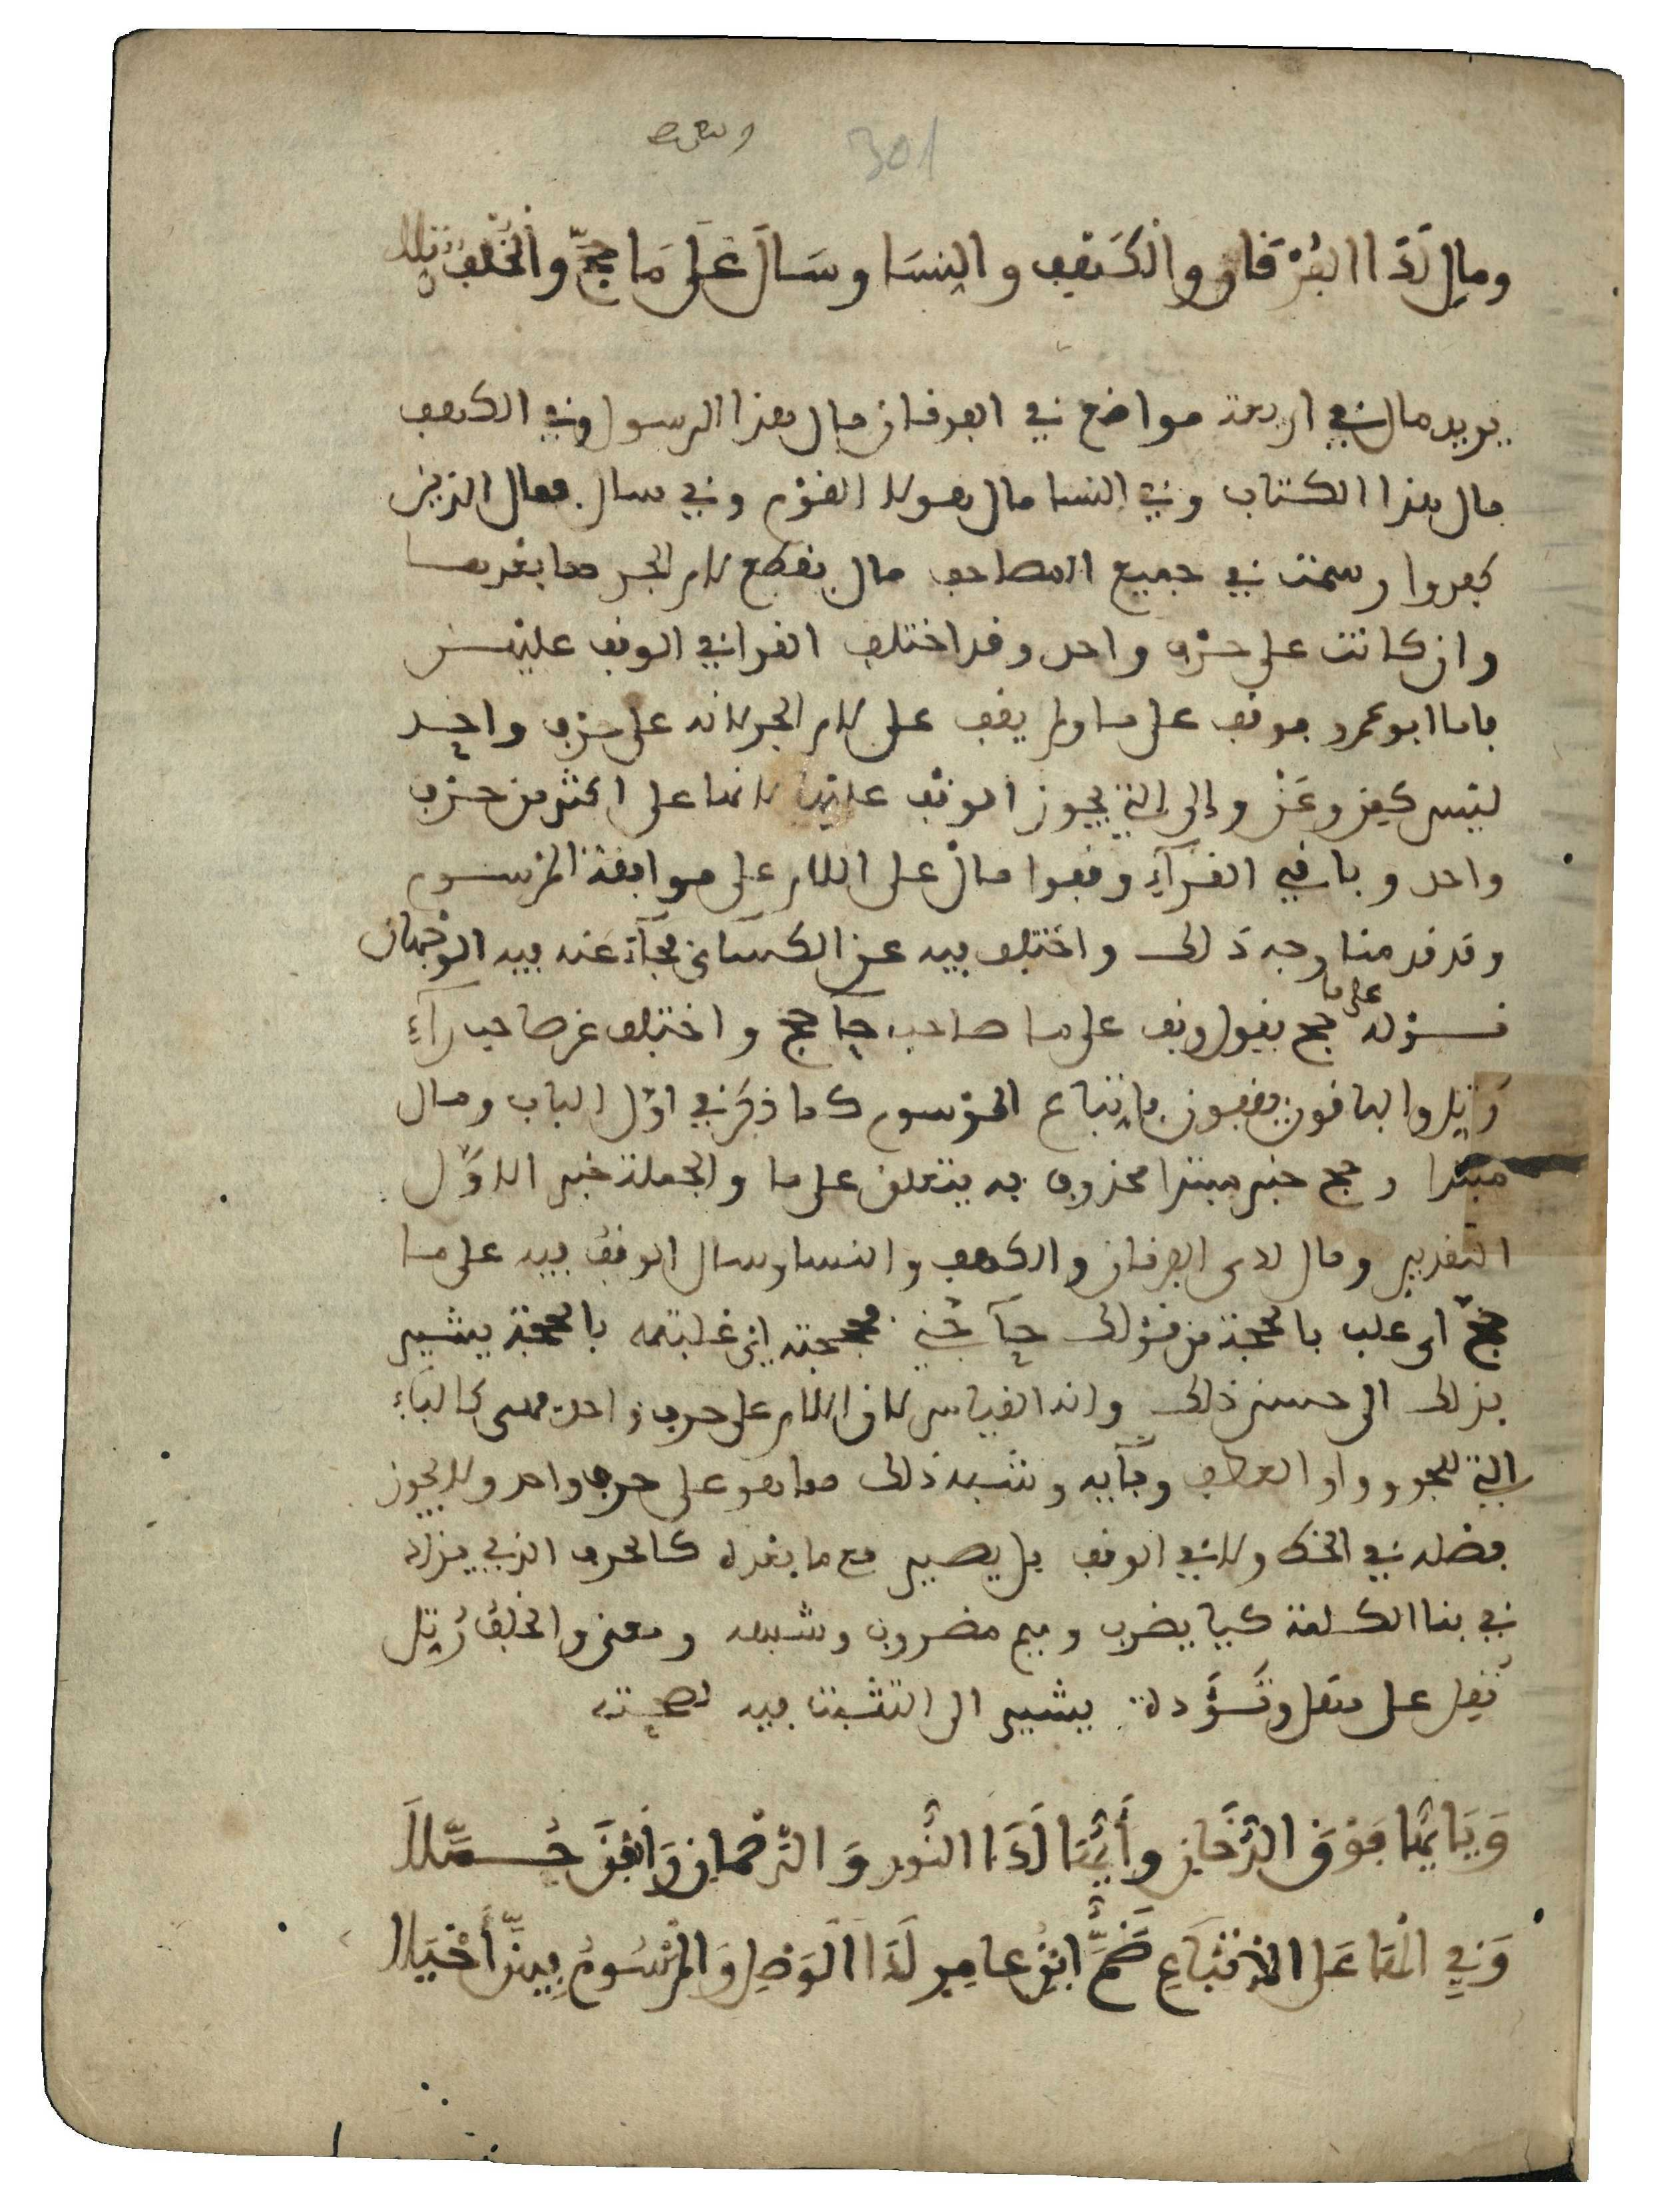 301
ومالِ لَدَا الفُرْقان والكَهْفِ والنِسَا وسَالَ عَلَى مَا حَجَّ والخُلْفُ رُتِّلا
يريد مال في اربعة مواضع في الفرقان مال هذا الرسول وفي الكهف
مال هذا الكتاب وفي النسا مال هولا القوم وفي سال فمال الذين
كفروا رسمت في جميع المصاحف مال بقطع لام الجر مما بعدها
وان كانت على حرف واحد وقد اختلف القرا في الوقف عليهن
فاما ابو عمرو فوقف على ما ولم يقف على لام الجر لانه على حرف واحد
ليس كمِن وعَن وإلى التي يجوز الوقف عليها لانها على اكثر من حرف
واحد وباقي القرآء وقفوا مالْ على اللام على موافقة المرسوم
وقد قدمنا وجه ذلك واختلف فيه عن الكسائي فجآء عنه فيه الوجهان
قوله على ما حج يقول وقف على ما صاحب حآ حج واختلف عن صاحب رآء
رُتِل والباقون يقفون باتباع المرسوم كما ذكر في اوّل الباب ومال
مبتدا وحج خبر مبتدا محذوف به يتعلق على ما والجملة خبر الاوّل
التقدير ومال لدى الفرقان والكهف والنسا وسال الوقف فيه على ما
حجّ اي غلب بالحجة من قولك حآجّني فحججته اي غلبته بالحجة يشير
بذلك الى حسن ذلك وانه القياس لان اللام على حرف واحد فهي كالبآء
التي للجر وواو العطف وفآيه وشبه ذلك مما هو على حرف واحد ولا يجوز
فصله في الخط ولا في الوقف بل يصير مع ما بعده كالحرف الذي يزاد
في بنا الكلمة كيا يضرب وميم مضروب وشبهه ومعنى والخلف رُتِل
نُقِل على مهل وتُؤَدة يشير الى التثبت فيه لصحته
وَيَا أيُّهَا فَوْقَ الدُّخَانِ وأَيُّهَا لَدَا النُّورِ وَالرَّحْمٰنِ رَافَقْنَ حُمَّلَا
وَفِي الْهَا عَلَى الاِتْبَاعِ ضَمَّ ابْنُ عامِرٍ لَدَا الْوَصْلِ وَالْمَرْسُومُ فِيهِنَّ أَخْيَلا